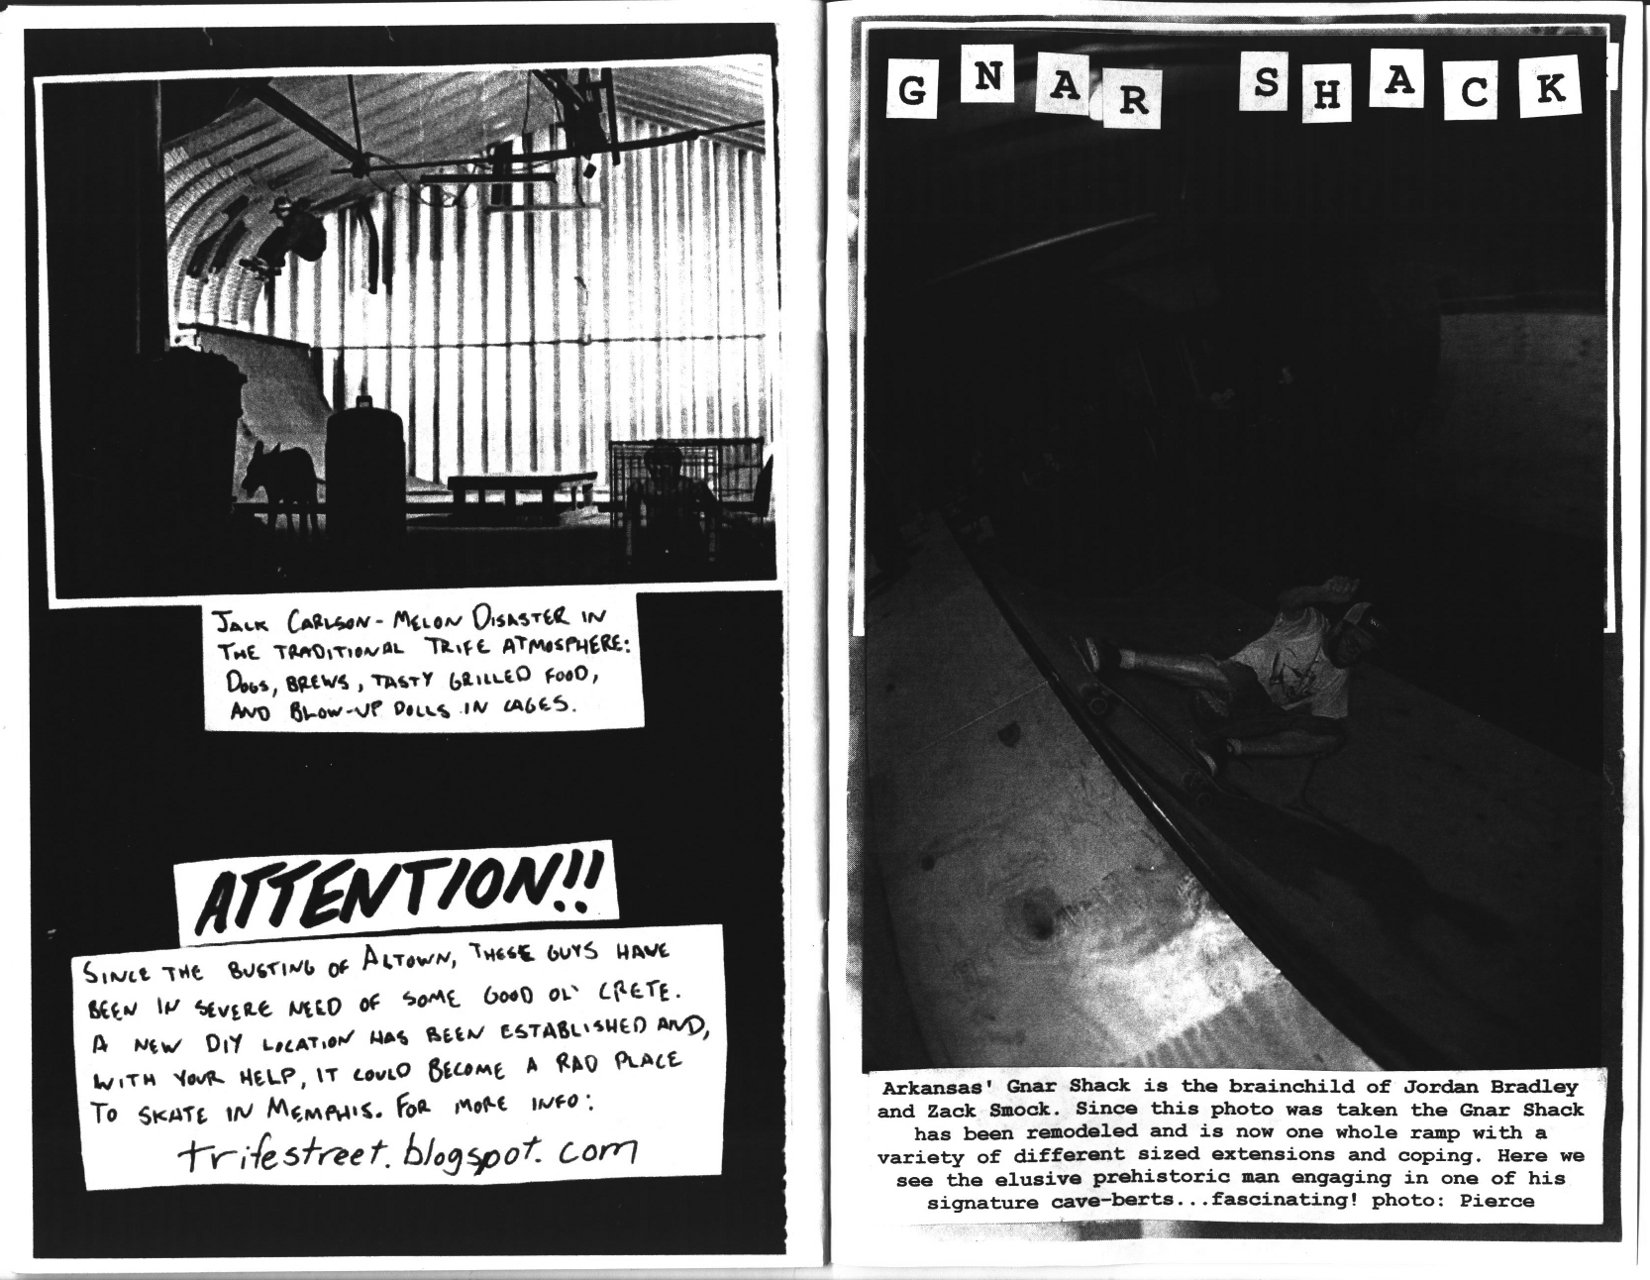 Jack Carlson - Melon Disaster in
the traditional Trife atmosphere:
Dogs, brews, tasty grilled food,
and blow-up dolls in cages.
ATTENTION!!
Since the busting of Altown, these guys have
been in severe need of some good ol' crete.
A new DIY location has been established and,
with your help, it could become a rad place
to skate in Memphis. For more info:
trifestreet.blogspot.com
GNAR SHACK
Arkansas' Gnar Shack is the brainchild of Jordan Bradley
and Zack Smock. Since this photo was taken the Gnar Shack
has been remodeled and is now one whole ramp with a
variety of different sized extensions and coping. Here we
see the elusive prehistoric man engaging in one of his
signature cave-berts...fascinating! photo: Pierce